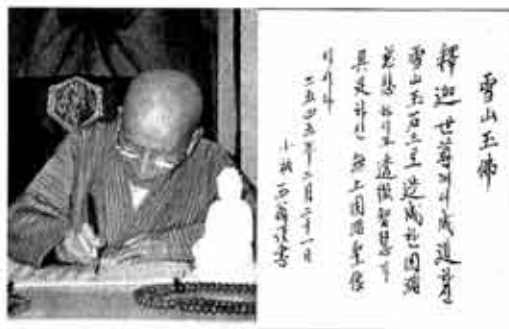 雪山玉佛
釋迦世尊께서 成道하신
雪山玉石으로 造成한 圓滿
慈悲하시고 智慧를
具足하신 無上圓滿聖像
이시다
二五四五年 二月 二十一日
小衲 西翁 謹書